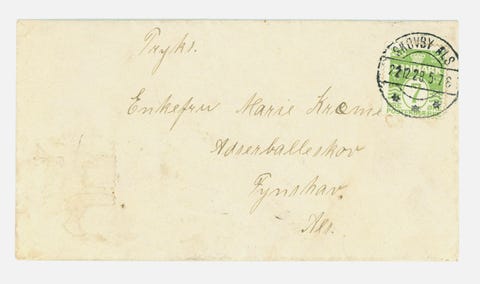 Tryks.
SKOVSBY ALS
22.12.28.5-7 E
7
Enkefru Marie Kromei
Adserballeskov
Fynshav
Als.